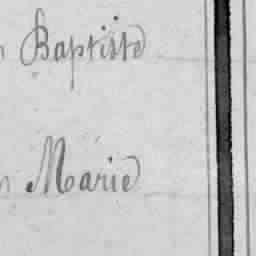 n Baptiste
n Marie